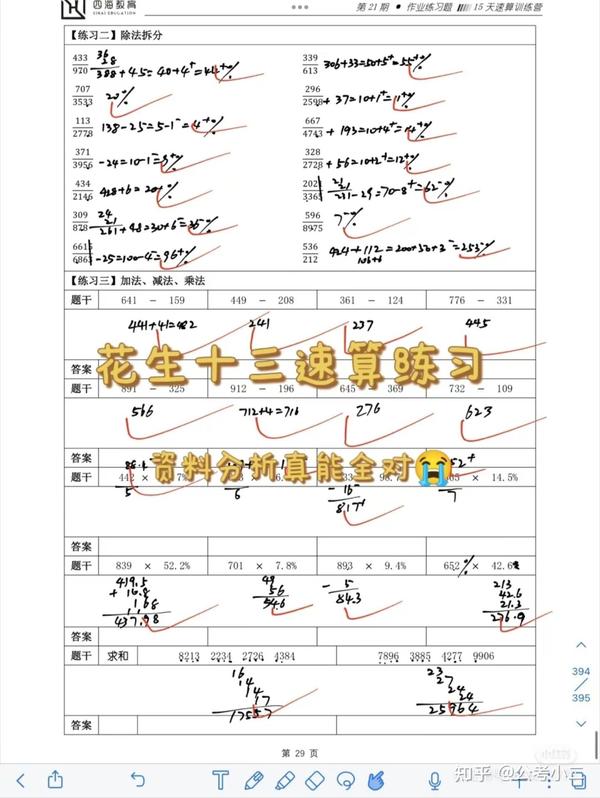 四海教育
SIHAI EDUCATION
第 21 期 • 作业练习题 15 天速算训练营
【练习二】除法拆分
433/970 388+45=40+4⁺=44⁺%
339/613 306+33=50+5⁺=55⁺%
707/3533 20⁺%
296/2598 +37=10+1⁺=11⁺%
113/2778 138-25=5-1⁻=4⁺%
667/4743 +193=10+4⁺=14⁺%
371/3956 -24=10-1⁻=9⁺%
328/2728 +56=10+2⁺=12⁺%
434/2146 428+6=20⁺%
202/336 231-29=70-8⁺=62⁻%
309/878 261+48=30+6⁻=36⁻%
596/8975 7⁻%
661/686 -25=100-4⁻=96⁺%
536/212 424+112=200+50+3⁻=253⁻%
106+6
【练习三】加法、减法、乘法
题干 641 － 159 449 － 208 361 － 124 776 － 331
441+41=482 241 237 445
答案
题干 891 － 325 912 － 196 645 － 369 732 － 109
花生十三速算练习
566 712+4=716 276 623
答案
资料分析真能全对😭
题干 442 × 7% × 14.5%
5 6 817⁺ 7
答案
题干 839 × 52.2% 701 × 7.8% 893 × 9.4% 652 × 42.6%
419.5 49 - 5 213
+ 16.8 56 84.3 42.6
1.68 54.6 21.3
437.98 276.9
答案
题干 求和 8213 2234 2726 4384 7896 3885 4277 9906
16 23
14 27
14 24
17 24
17557 25964
答案
394
395
第 29 页
小红书
知乎 @公考小二